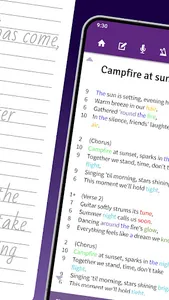 has come,
er
the
take
ng
9:30
Campfire at sun
9 The sun is setting, evening h
6 Warm breeze in our
6 Gathered 'round the fire,
10 In the silence, friends' laught
2 (Chorus)
10 Campfire at sunset, sparks in t
9 Together we stand, time, don't
7 Right
10 Singing 'til morning, stars shining
9 This moment we'll hold tight.
1+ (Verse 2)
7 Guitar softly strums its tune,
7 Summer night calls us soon,
8 Dancing around the fire's glow,
9 Everything feels like a dream we know
2 (Chorus)
10 Campfire at sunset, sparks in the
9 Together we stand, time, don't take
7 Right
10 Singing 'til morning, stars shining
9 This moment we'll hold tight.